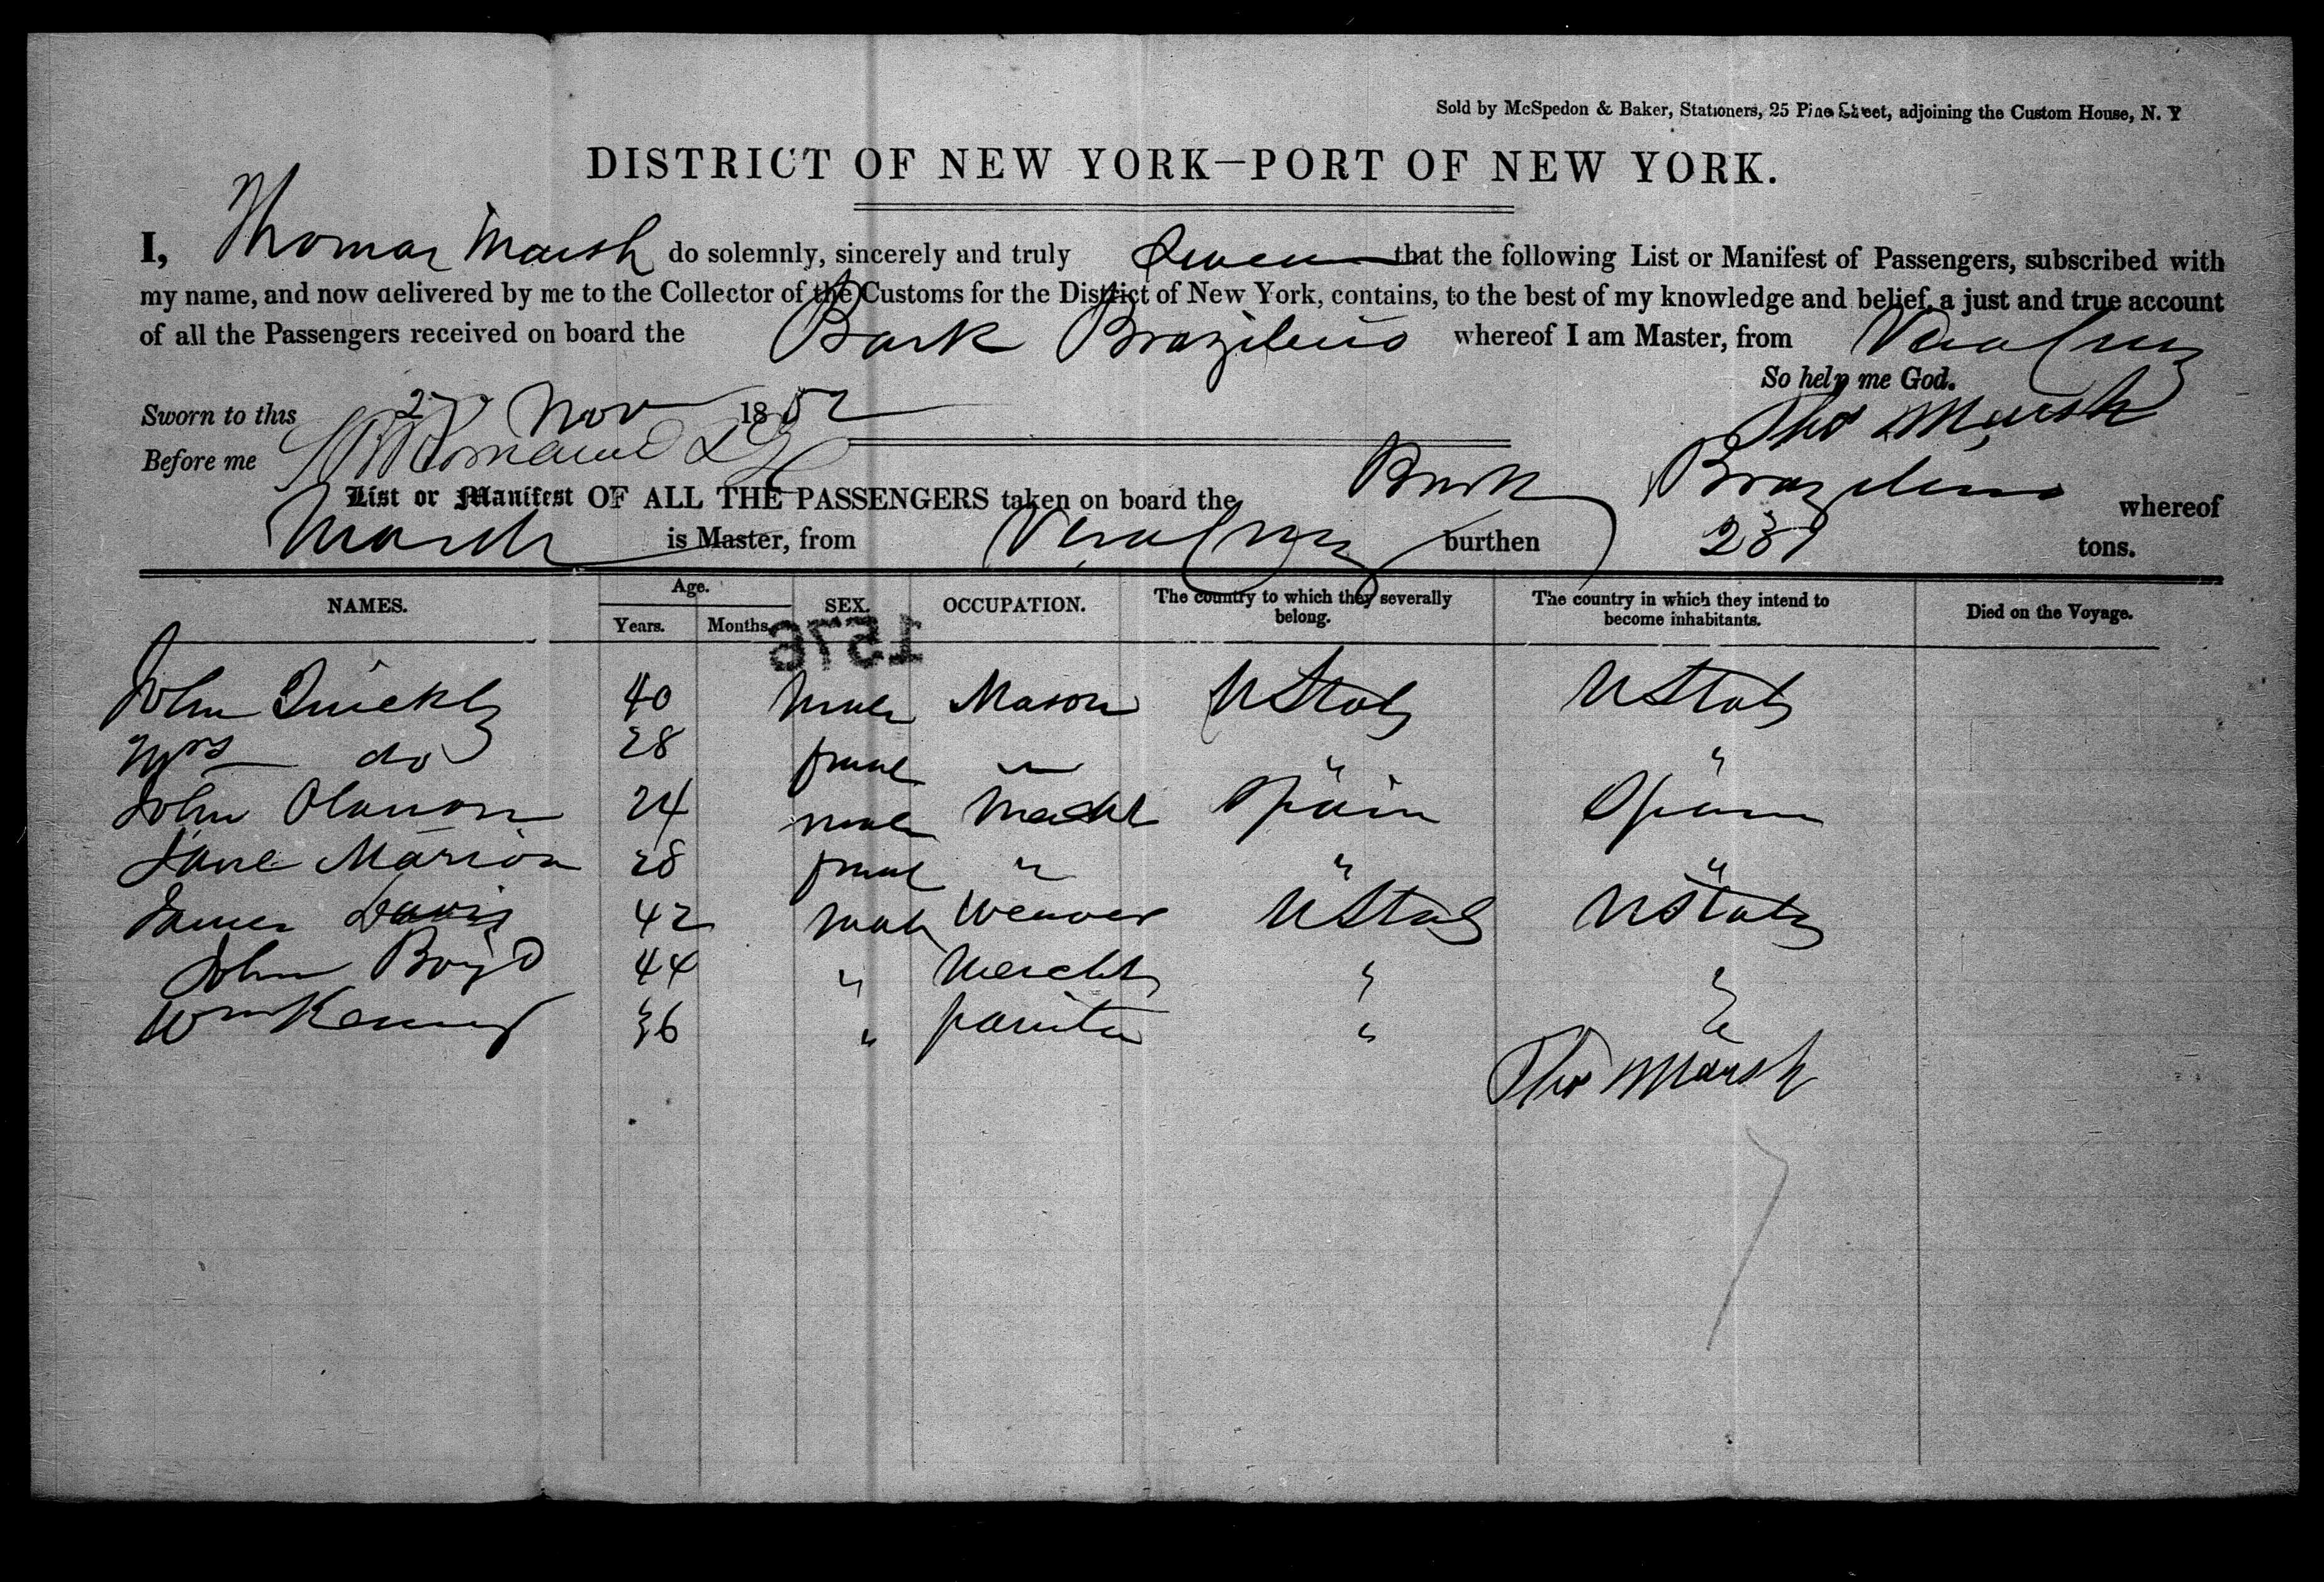 Sold by McSpedon & Baker, Stationers, 25 Pine Street, adjoining the Custom House, N. Y
DISTRICT OF NEW YORK—PORT OF NEW YORK.
I, Thomas Marsh do solemnly, sincerely and truly Swear that the following List or Manifest of Passengers, subscribed with
my name, and now delivered by me to the Collector of the Customs for the District of New York, contains, to the best of my knowledge and belief, a just and true account
of all the Passengers received on board the Bark Brazileiro whereof I am Master, from Vera Cruz
So help me God.
Sworn to this Nov 1852 Thos Marsh
Before me
List or Manifest OF ALL THE PASSENGERS taken on board the Bark Brazileiro whereof
Marsh is Master, from Vera Cruz burthen tons.
NAMES. Age. Years. Months. SEX. OCCUPATION. The country to which they severally belong. The country in which they intend to become inhabitants. Died on the Voyage.
1576
John Quickly 40 male Mason U States U States
Mrs do 28 female " " "
John 24 male Spain Spain
Jane Marion 28 female " " "
James Davis 42 male Weaver U States U States
John Boyd 44 " Mercht " "
Wm Kenny 36 " painter " "
Thos Marsh